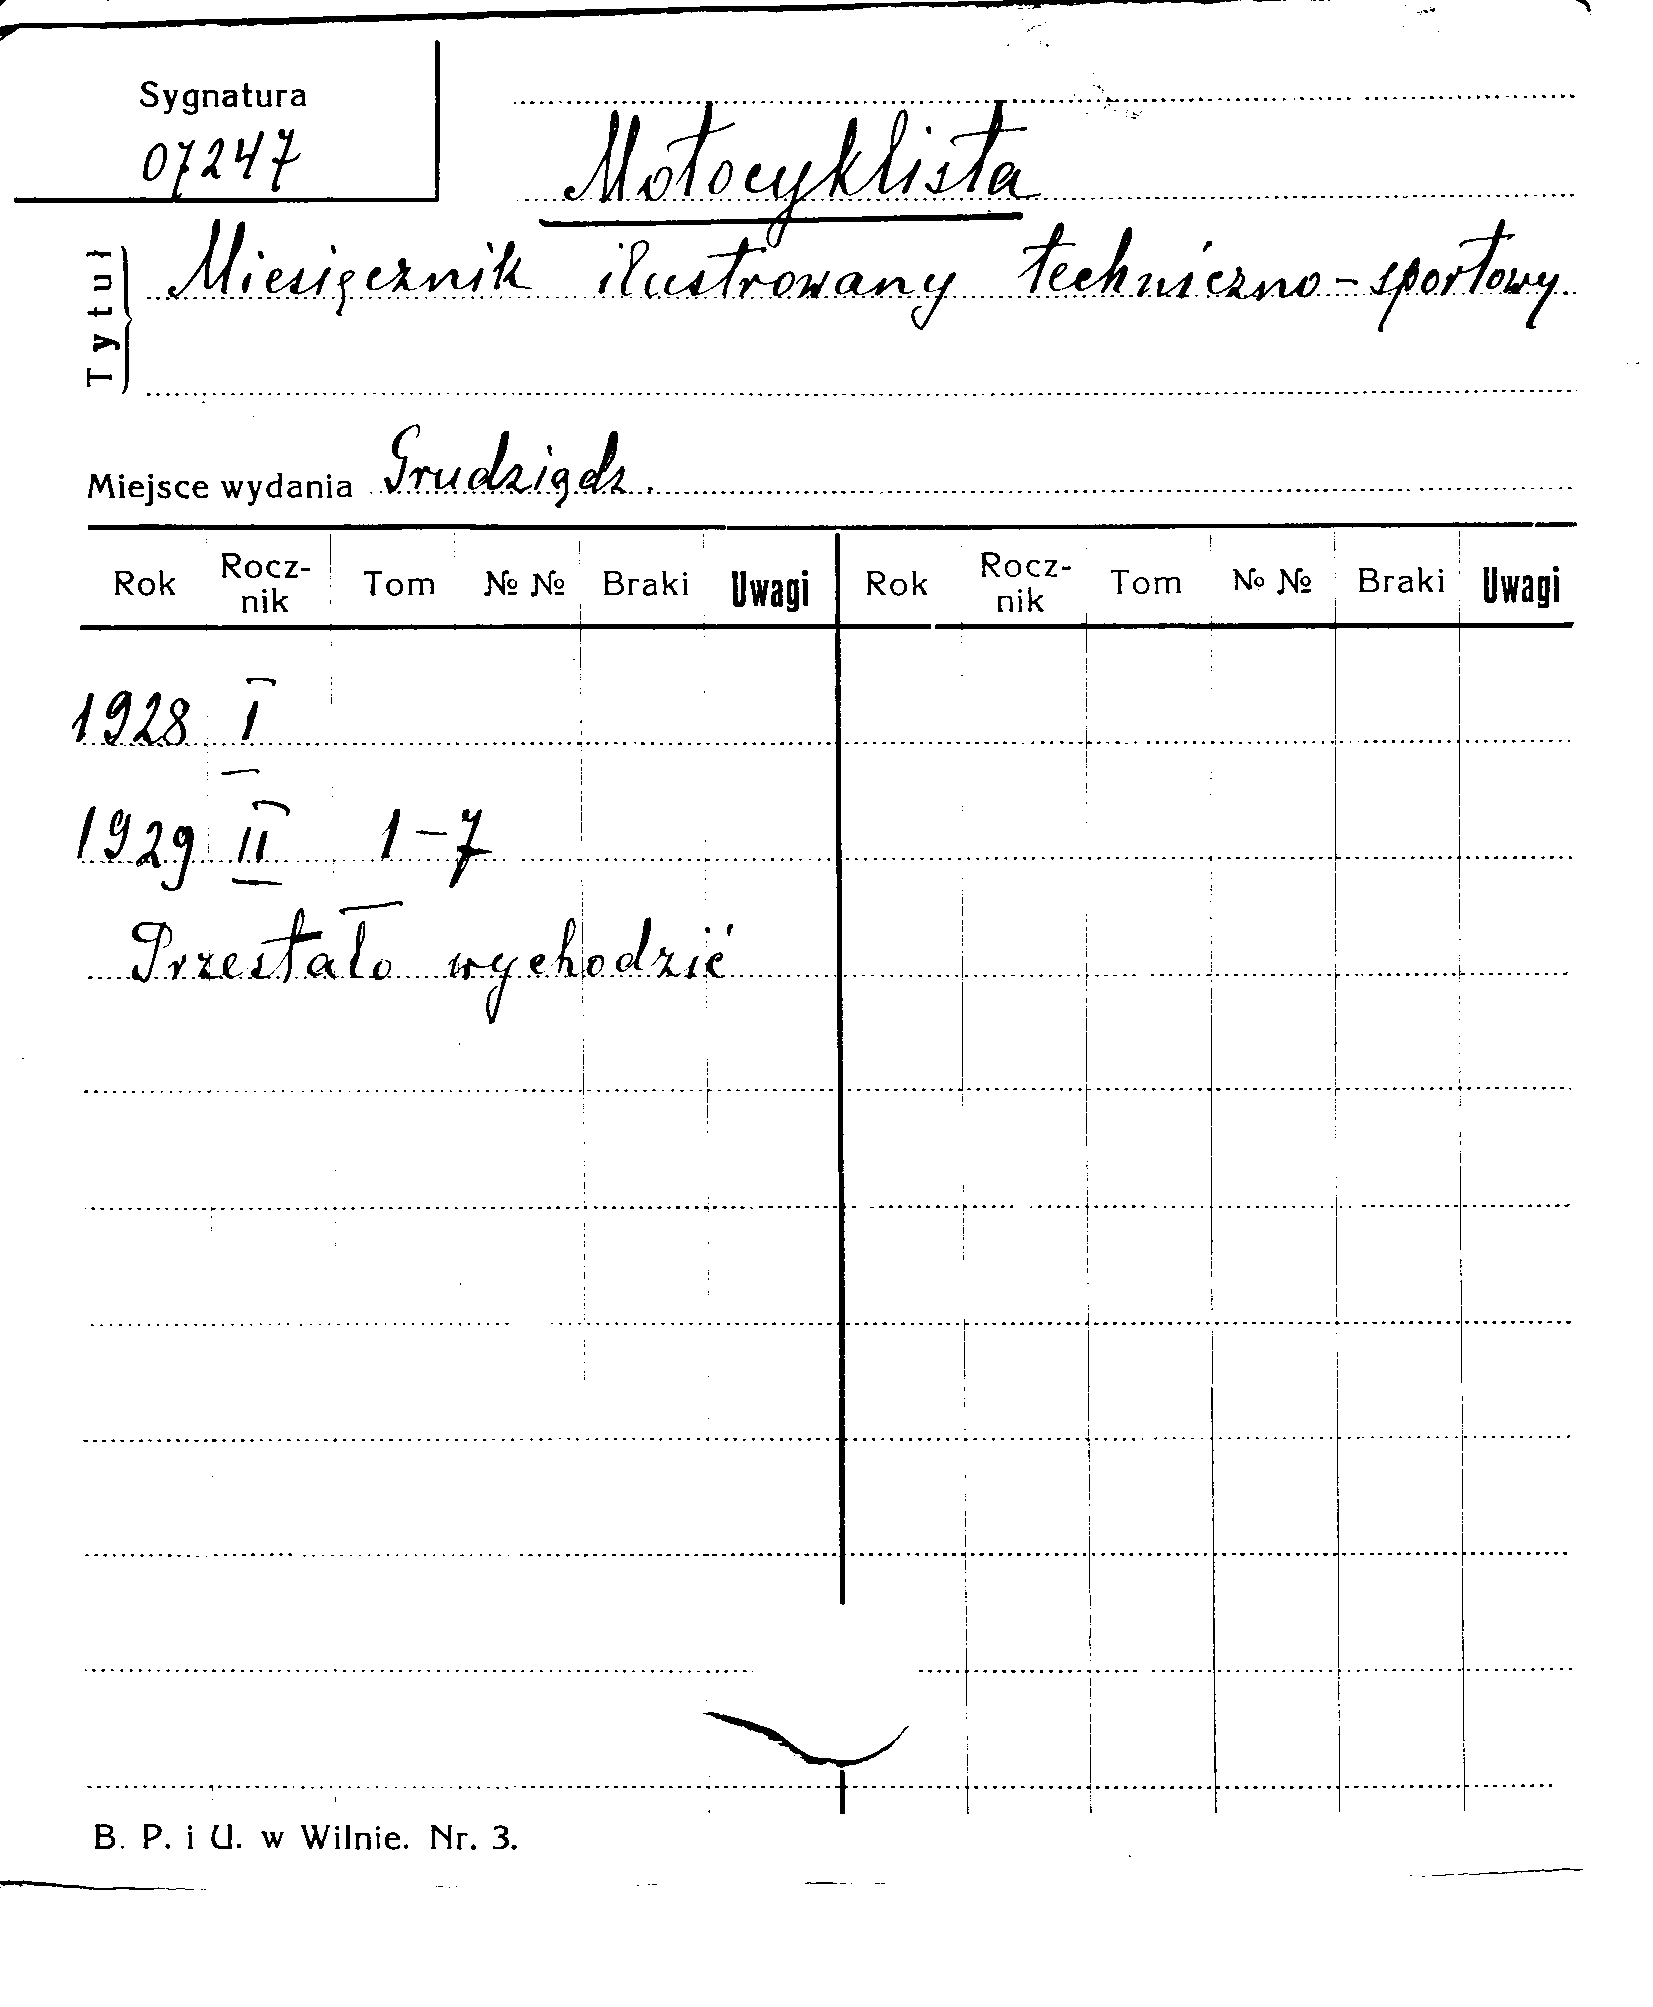 Sygnatura
07247
Motocyklista
Tytuł
Miesięcznik ilustrowany techniczno-sportowy.
Miejsce wydania Grudziądz.
Rok Rocz-nik Tom № № Braki Uwagi Rok Rocz-nik Tom № № Braki Uwagi
1928 I
1929 II 1-7
Przestało wychodzić
B. P. i U. w Wilnie. Nr. 3.